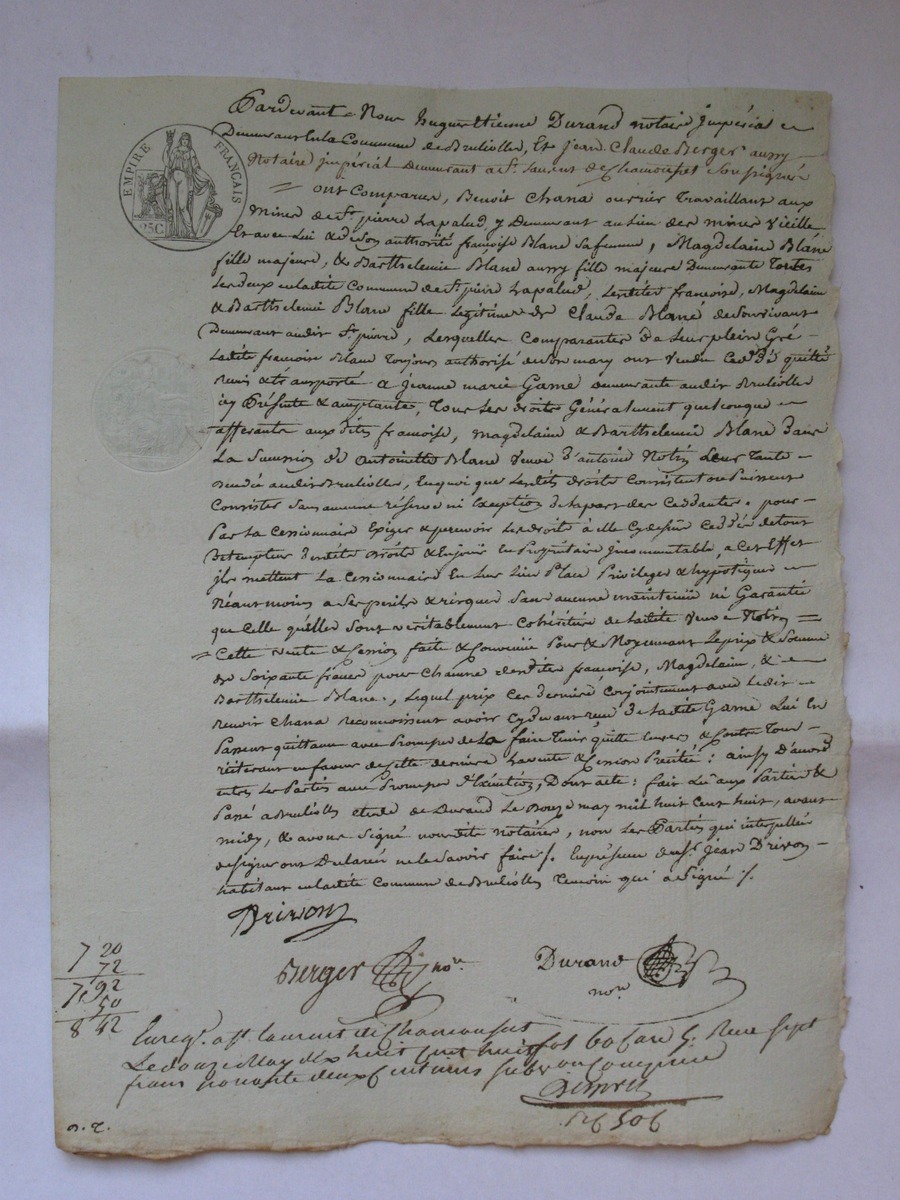 EMPIRE FRANÇAIS
25C
Pardevant Nous hugues Etienne Durand notaire Impérial
Demeurant En la Commune de Brulioles, Et jean Claude Berger aussy
Notaire jmpérial Demeurant a St. Laurent de Chamousset Soussignés
= ont Comparus, Benoit Chana ouvrier Travaillant aux
Mines de St. pierre Lapalud y Demeurant au lieu des mines Vieille
Et avec Lui & de son authorité francoise Blanc sa femme, Magdelaine Blanc
fille majeure, & Barthelemie Blanc aussy fille majeure Demeurante Toutes
Les deux en ladite Commune de St. pierre Lapalud, Lesdites francoise, Magdelaine
& Barthelemie Blanc fille Legitimes de Claude Blanc de Son vivant
Demeurant audit St. pierre, Lesquelles Comparantes De Leur plein Gré
Ladite francoise Blanc Toujours authorisé de son mary ont vendu Ceddé quitté
Remis & transporté a jeanne marie Game demeurante audit Brulioles
icy Présente & acceptante, Tous Les droits Généralement quelconque
afferants aux dites francoise, Magdelaine & Barthelemie Blanc dans
La Succession de Antoinette Blanc Veuve d'antoine Notin Leur Tante
Decedée audit Brulioles, En quoi que Lesdits droits Consistent ou Puissent
Consister Sans aucune réserve ni Exception de la part des Ceddantes. pour
Par La Cessionnaire Exiger & percevoir Les droits a Elle Cy dessus Ceddés de tout
Detempteur desdits droits & En jouir En Propriétaire jncommutable, a Cet Effet
jls mettent La Cessionnaire En Leur Lieu Place Privileges & hypotèques
Néantmoins a Ses perils & risques Sans aucune maintenüe ni Garantie
que Celle qu'elles Sont veritablement Cohéritière de ladite Veuve Notin =
= Cette vente & Cession faite & Convenüe Pour & Moyennant Le prix & Somme
de Soixante francs pour Chacune desdites francoise, Magdelaine, &
Barthelemie Blanc, Lequel prix Ces dernière Conjointement avec Ledit
Benoit Chana reconnoissent avoir Cy devant reçu De Ladite Game Lui En
Passent quittance avec Promesse de La faire Tenir quitte Envers & Contre Tous
réiterant en faveur de Cette derniere La vente & Cession Précitée: ainsy D'accord
entre Les Parties avec Promesse D'Exécution, Dont acte: fait Lu aux Parties &
Passé a Brulioles étude de Durand Le Douze may mil huit Cent huit, avant
midy, & avons Signé nousdits notaires, non Les Parties qui interpellés
de signer ont Declarés ne le Savoir faire /. En présence de Sr. jean Drivon
habitant en ladite Commune de Brulioles Temoin qui a Signé /.
Drivon
Berger nore.
Durand
nore.
7 20
72
7,92
50
8 42
Enregé. a St. Laurent de Chamousset
Le douze May dix huit Cent huit fol 60 Case 5. Recu Sept
francs nonante deux Centimes Subvention Comprise